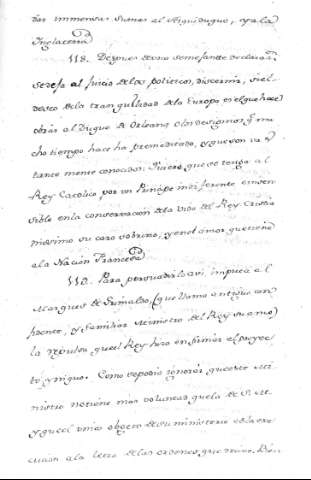 dar immensas sumas al Archiduque, y a la
Inglaterra
118. Despues de una semejante declaraon.
se dexa al juicio de los politicos, discernir, si el
deseo de la tranquilidad de la Europa es el que hace
obrar al Duque de Orleans, o los designios, q. mu
cho tiempo hace ha premeditado, y que son vas
tante mente conocidos: Quiere, que se tenga al
Rey Catolico, por un Principe indiferente e insen
sible en la conservacion de la vida del Rey Cristia
nissimo su caro sobrino, y en el amor que tiene
a la Nacion Francesa
119. Para persuadirlo asi, imputa al
Marques de Grimaldo, (que llama antiguo con
fidente, y familiar Ministro del Rey su amo)
la repulsa que el Rey hizo en firmar el proyec
to iniquo. Como se podia ignorar, que este Mi
nistro no tiene mas voluntad que la de S. M.
y que el unico objeto de su ministerio es la exe
cucion a la letra de las ordenes que recive.